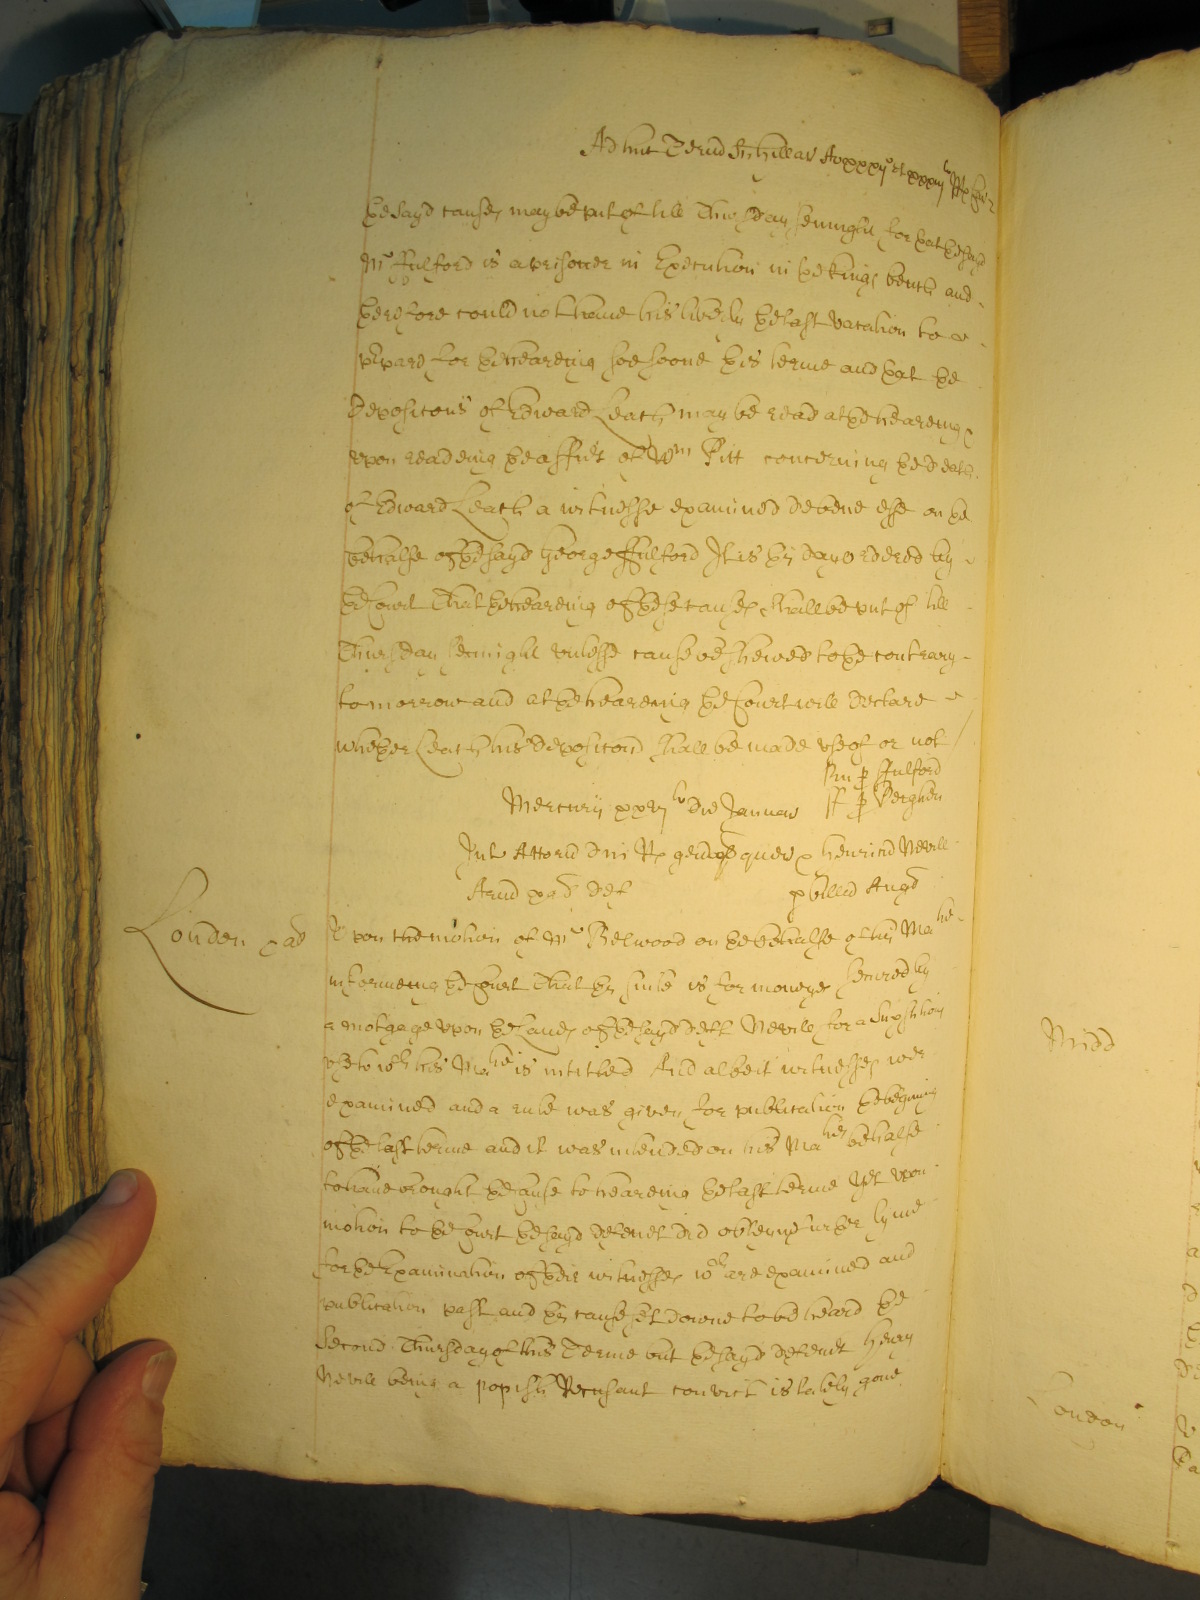 Adhuc Term Sci Hillar Ao xxxij et xxxiij
ye sayd causes may be put of till Thursday sennight for yat ye sayd
Mr Fulford is a prisoner in Execution in ye Kings bench and
yerefore could not have his liberty ye last vacation to
ppare for ye heareing soe soone this terme and yat ye
Depositons of Edward Leach may be read at ye heareing
upon reading ye affidt of Wm Pitt concerning ye death
of Edward Leach a witnesse examined de bene esse on ye
behalfe of ye sayd George Fulford It is ys day ordered by
ye Court That ye heareing of yese causes shall be put of till
Thursday sennight unlesse cause be shewed to ye contrary
to morrow and at ye heareing ye Court will declare
whether Leach his depositons shall be made use of or not
p Fulford
Mercurij Die Januar
Int Attorn Dni R gen quer Henricu Nevill
Arm def p Billed Angl
London
Upon the motion of Mr Belwood on ye behalfe of his Matie
informeing ye Court That ys suite is for moneys secured by
a motgage upon ye Lands of ye sayd deft Nevile for a Supstitious
use to wch his Matie is intitled And albeit witnesses were
examined and a rule was given for publication ye begining
of ye last terme and it was intended on his Maties behalfe
to have brought ye cause to heareing ye last terme Yet upon
motion to ye Court ye sayd defendt did obteyne further tyme
for ye Examination of yeir witnesses wch are examined and
publication past and ys cause set downe to be heard ye
Second Thursday of this Terme but ye sayd defendt Henry
Nevile being a popish Recusant convict is lately gone
Midd
London